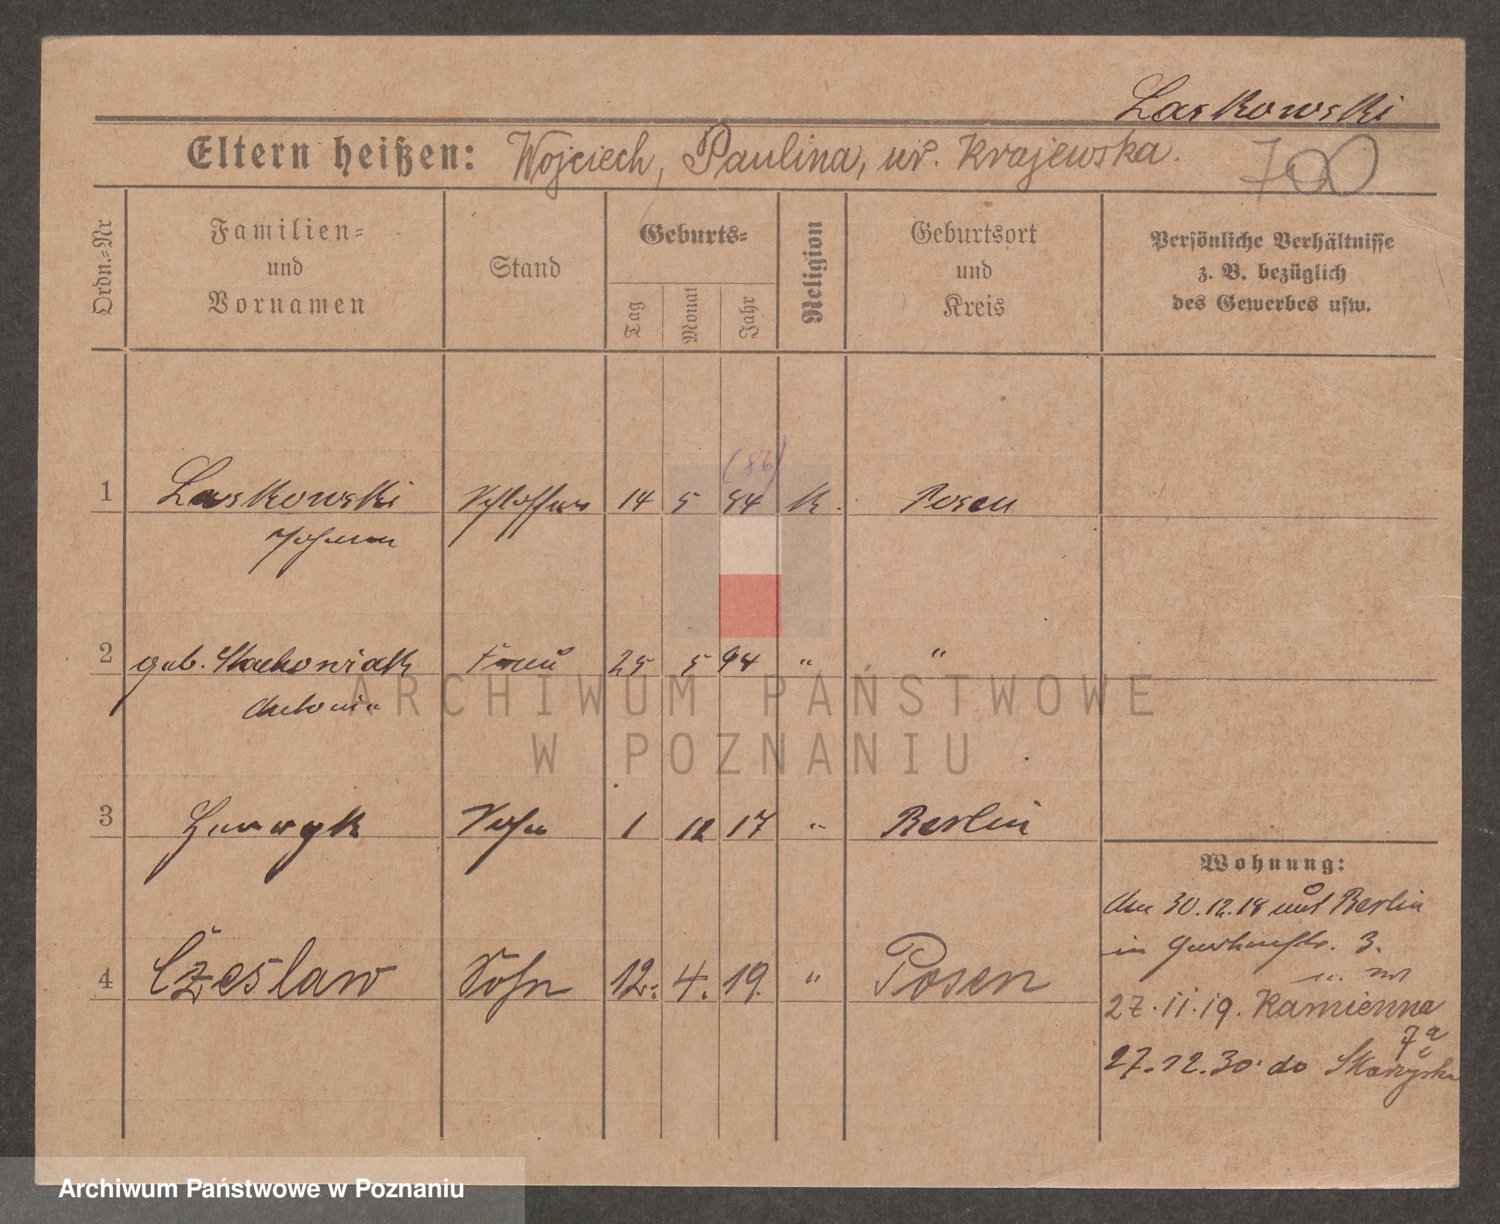 Laskowski
Eltern heißen: Wojciech, Paulina, ur. Krajewska.
700
Ordn.=Nr
Familien=
und
Vornamen
Stand
Geburts=
Tag
Monat
Jahr
Religion
Geburtsort
und
Kreis
Persönliche Verhältnisse
z. B. bezüglich
des Gewerbes usw.
(86)
1 Laskowski Schlosser 14 5 84 K. Posen
Johann
2 geb. Stachowiak Frau 25 5 94 " "
Antonie
3 Henryk Sohn 1 12 17 " Berlin
4 Czesław Sohn 12. 4. 19. " Posen
Wohnung:
den 30.12.18 aus Berlin
in 3.
27.11.19. Kamienna
7a
27.12.30. do Skarzyska
ARCHIWUM PAŃSTWOWE
W POZNANIU
Archiwum Państwowe w Poznaniu